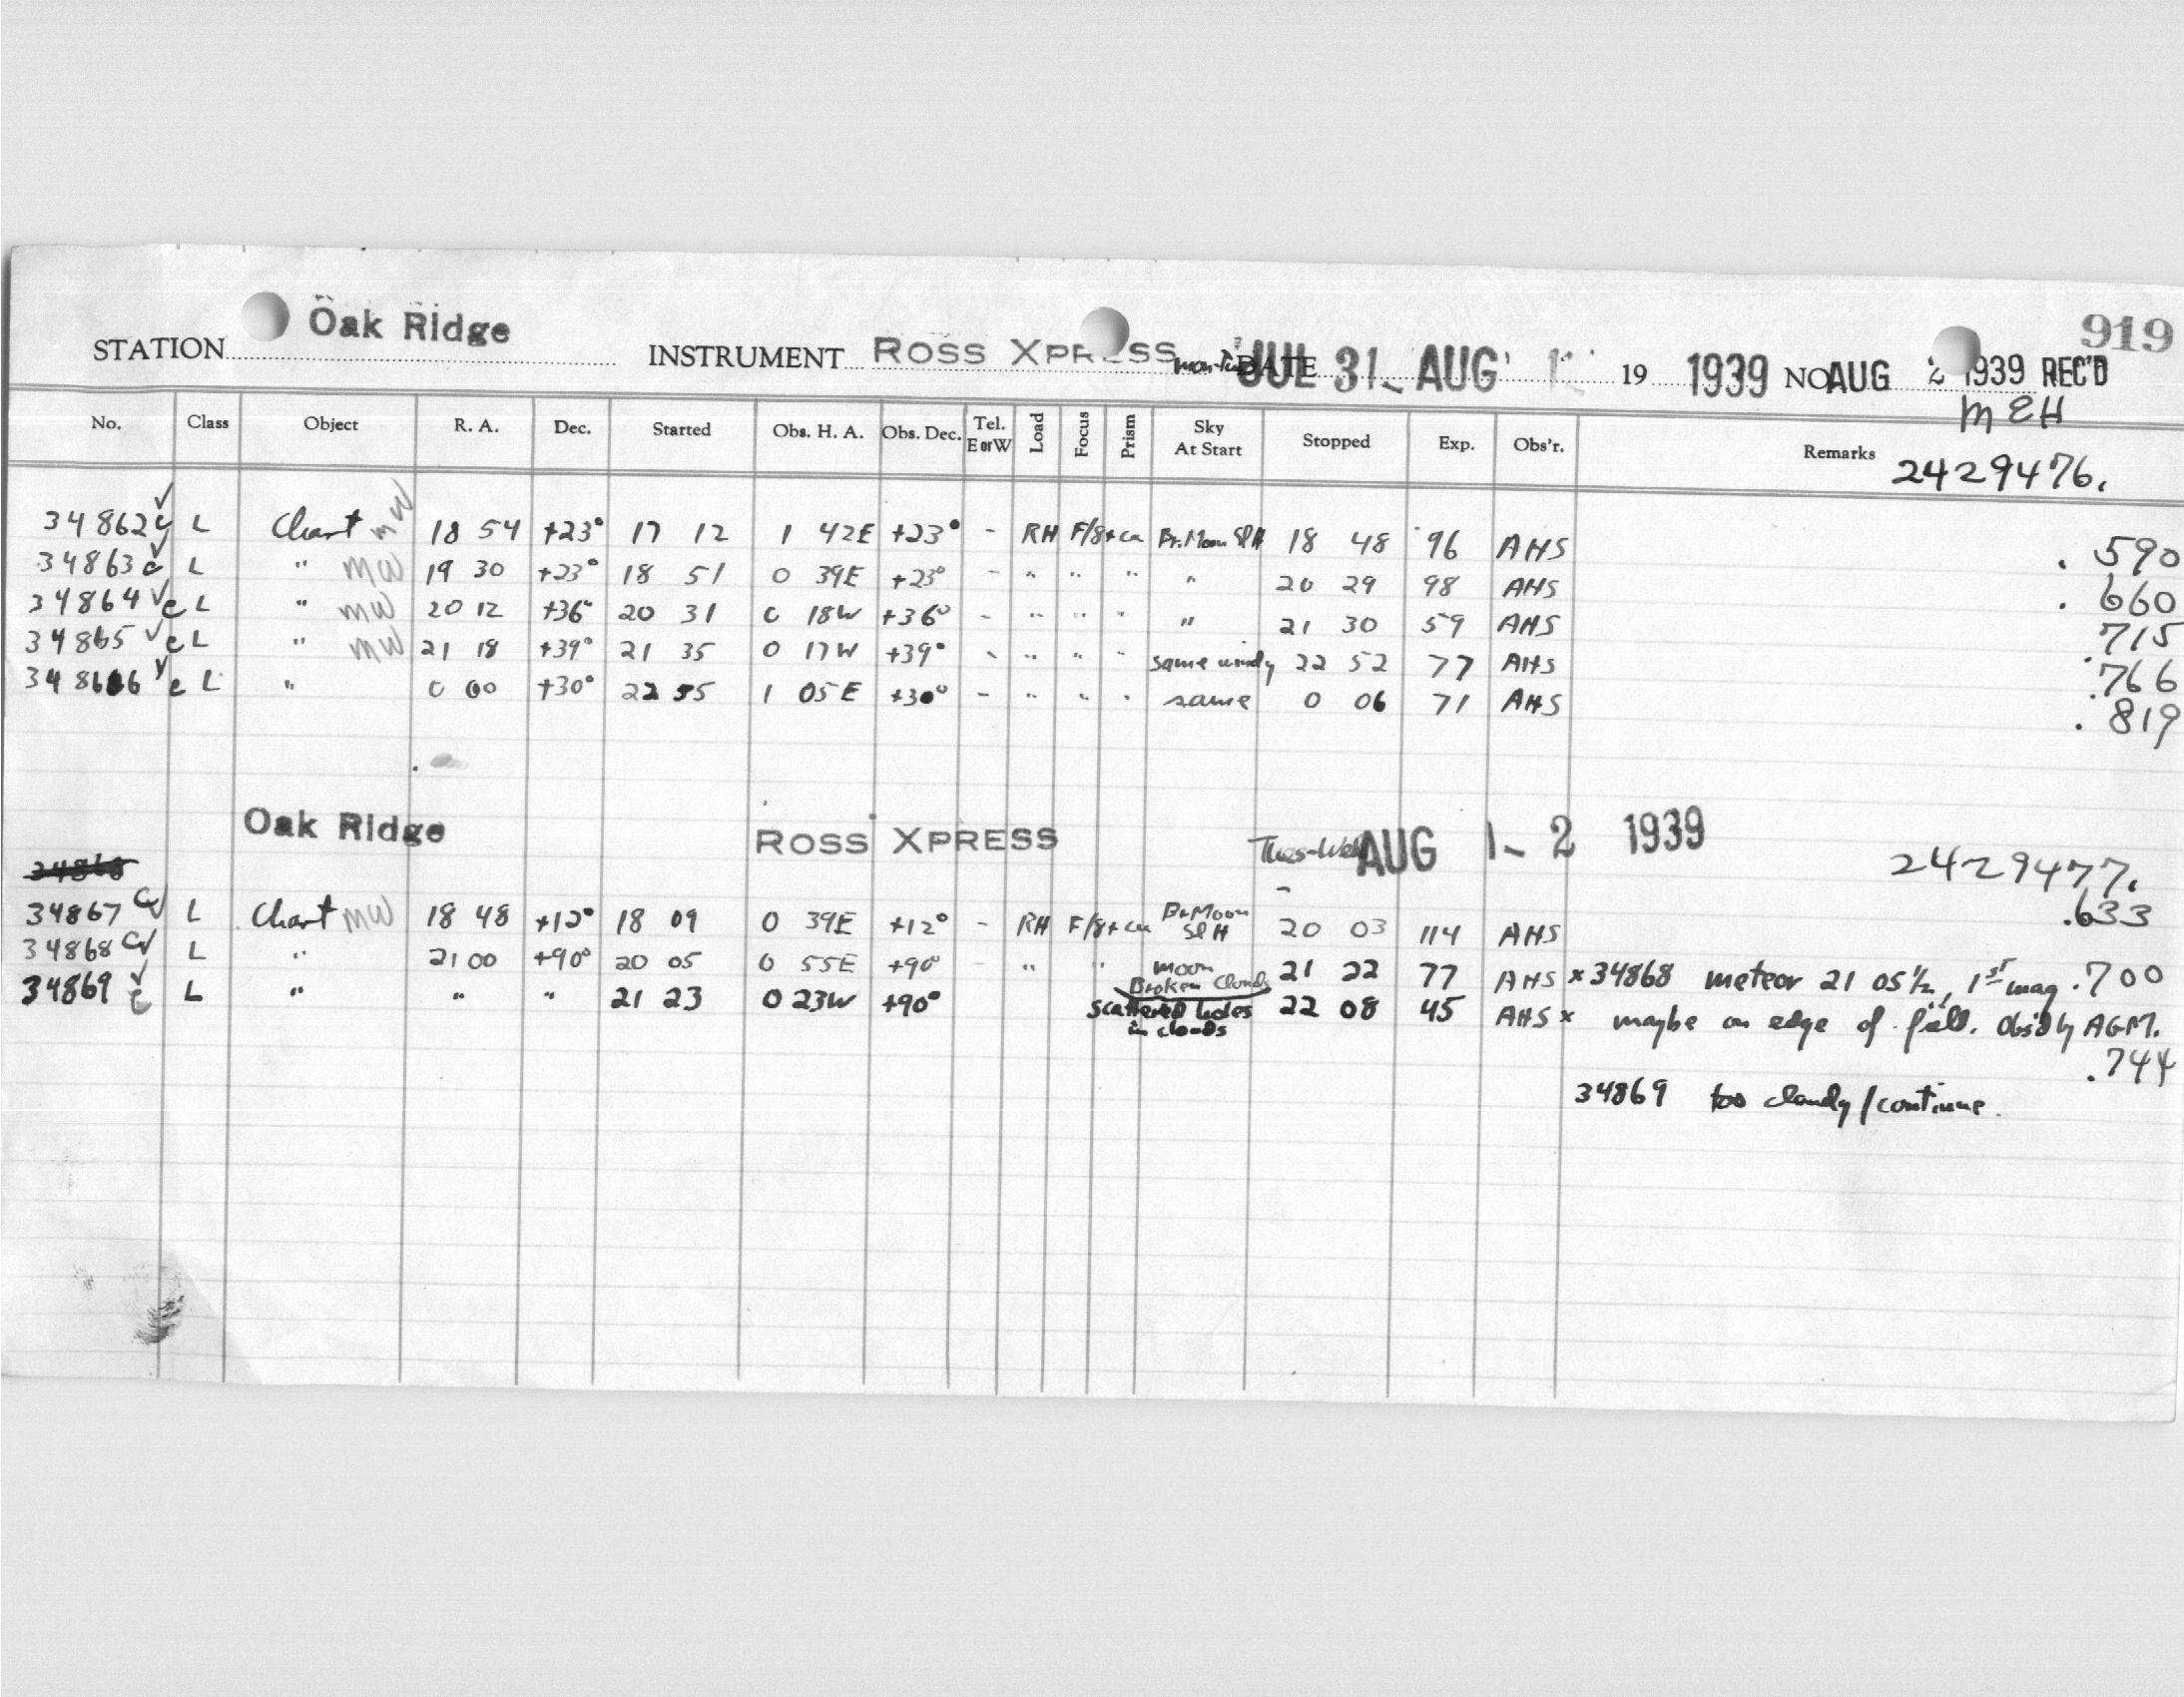 919
STATION Oak Ridge INSTRUMENT ROSS XPRESS Mon-Tues DATE JUL 31- AUG 1 19 1939 NO. AUG 2 1939 REC'D
MEH
No. Class Object R. A. Dec. Started Obs. H. A. Obs. Dec. Tel. E or W Load Focus Prism Sky At Start Stopped Exp. Obs'r. Remarks
2429476.
34862 ✓ c L Chart MW 18 54 +23° 17 12 1 42E +23° - RH F/8+ca Br. Moon Sl H 18 48 96 AHS .590
34863 ✓ c L " MW 19 30 +23° 18 51 0 39E +23° - " " " " 20 29 98 AHS .660
34864 ✓ c L " MW 20 12 +36° 20 31 0 18W +36° - " " " " 21 30 59 AHS .715
34865 ✓ c L " MW 21 18 +39° 21 35 0 17W +39° - " " " same windy 22 52 77 AHS .766
34866 ✓ c L " 0 00 +30° 22 55 1 05E +30° - " " " same 0 06 71 AHS .819
Oak Ridge ROSS XPRESS Tues-Wed AUG 1- 2 1939
2429477.
34867 c✓ L Chart MW 18 48 +12° 18 09 0 39E +12° - RH F/8+ca Br Moon Sl H 20 03 114 AHS .633
34868 c✓ L " 21 00 +90° 20 05 0 55E +90° - " " moon Broken Clouds 21 22 77 AHS × 34868 meteor 21 05½, 1st mag .700
34869 ✓ c L " " " 21 23 0 23W +90° Scattered holes in clouds 22 08 45 AHS × maybe on edge of field. Obs'd by AGM.
.744
34869 too cloudy / continue.